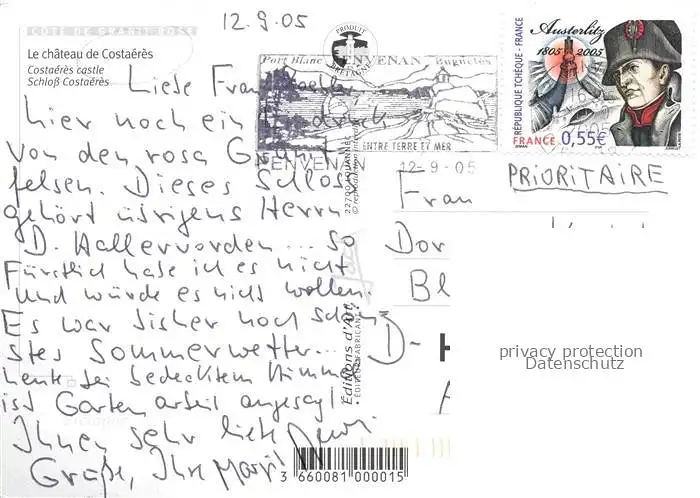 12.9.05
CÔTE DE GRANIT ROSE
Le château de Costaérès
Costaérès castle
Schloß Costaérès
Liebe Frau
hier noch ein Eindruck
von den rosa Granit
felsen. Dieses Schloss
gehört übrigens Herrn
D. Hallervorden... so
Fürstlich habe ich es nicht
und würde es nicht wollen.
Es war bisher noch schön
stes Sommerwetter...
heute bei bedecktem Himmel
ist Gartenarbeit angesagt.
Ihnen sehr liebe
Grüße, Ihre
PRODUIT
BRETAGNE
Port Blanc PENVENAN Buguélès
ENTRE TERRE ET MER
PENVENAN 12-9-05
Austerlitz
1805 2005
RÉPUBLIQUE TCHÈQUE - FRANCE
FRANCE 0,55€
PRIORITAIRE
Frau
Dor
Bl
D-
22700 LOUANNEC
© reproduction interdite
Editions d'Art
ÉDITEUR FABRICANT
3 660081 000015
privacy protection
Datenschutz